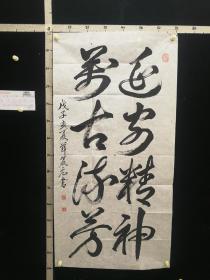 延安精神
萬古流芳
戊子年夏